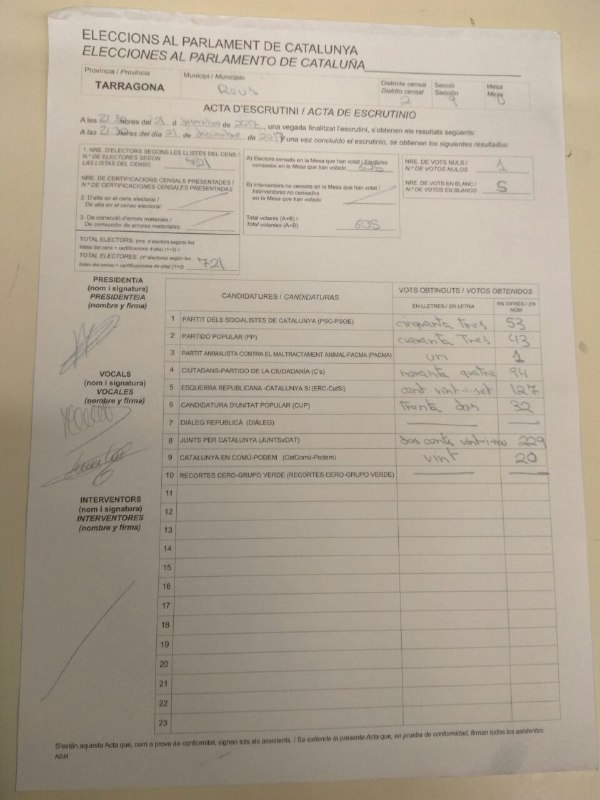 ELECCIONS AL PARLAMENT DE CATALUNYA
ELECCIONES AL PARLAMENTO DE CATALUÑA
Província / Provincia
TARRAGONA
Municipi / Municipio
Reus
Districte censal
Distrito censal
2
Secció
Sección
9
Mesa
Mesa
ACTA D'ESCRUTINI / ACTA DE ESCRUTINIO
A les 21:30 hores del 21 d desembre de 2017 una vegada finalitzat l'escrutini, s'obtenen els resultats següents:
A las 21:30 horas del día 21 de Diciembre de 2017 y una vez concluido el escrutinio, se obtienen los siguientes resultados:
1. NRE. D'ELECTORS SEGONS LES LLISTES DEL CENS /
N.º DE ELECTORES SEGÚN
LAS LISTAS DEL CENSO
721
NRE. DE CERTIFICACIONS CENSALS PRESENTADES /
N.º DE CERTIFICACIONES CENSALES PRESENTADAS
2. D'alta en el cens electoral /
De alta en el censo electoral
3. De correcció d'errors materials /
De corrección de errores materiales
TOTAL ELECTORS: (nre. d'electors segons les
llistes del cens + certificacions d'alta) (1+2) /
TOTAL ELECTORES: (nº electores según las
listas del censo + certificaciones de alta) (1+2)
721
A) Electors censats en la Mesa que han votat / Electores
censados en la Mesa que han votado
635
B) Interventors no censats en la Mesa que han votat /
Interventores no censados
en la Mesa que han votado
Total votants (A+B) /
Total votantes (A+B)
635
NRE. DE VOTS NULS /
N.º DE VOTOS NULOS
1
NRE. DE VOTS EN BLANC /
N.º DE VOTOS EN BLANCO
5
PRESIDENT/A
(nom i signatura)
PRESIDENTE/A
(nombre y firma)
VOCALS
(nom i signatura)
VOCALES
(nombre y firma)
INTERVENTORS
(nom i signatura)
INTERVENTORES
(nombre y firma)
CANDIDATURES / CANDIDATURAS
VOTS OBTINGUTS / VOTOS OBTENIDOS
EN LLETRES / EN LETRA
EN XIFRES / EN NÚM.
1 PARTIT DELS SOCIALISTES DE CATALUNYA (PSC-PSOE) cinquanta tres 53
2 PARTIDO POPULAR (PP) cuaranta tres 43
3 PARTIT ANIMALISTA CONTRA EL MALTRACTAMENT ANIMAL-PACMA (PACMA) un 1
4 CIUTADANS-PARTIDO DE LA CIUDADANÍA (C's) noranta quatre 94
5 ESQUERRA REPUBLICANA -CATALUNYA SÍ (ERC-CatSí) cent vint-i-set 127
6 CANDIDATURA D'UNITAT POPULAR (CUP) trenta dos 32
7 DIÀLEG REPUBLICÀ (DIÀLEG)
8 JUNTS PER CATALUNYA (JUNTSxCAT) dos cents vint-i-nou 229
9 CATALUNYA EN COMÚ-PODEM (CatComú-Podem) vint 20
10 RECORTES CERO-GRUPO VERDE (RECORTES CERO-GRUPO VERDE)
11
12
13
14
15
16
17
18
19
20
21
22
23
S'estén aquesta Acta que, com a prova de conformitat, signen tots els assistents. / Se extiende la presente Acta que, en prueba de conformidad, firman todos los asistentes.